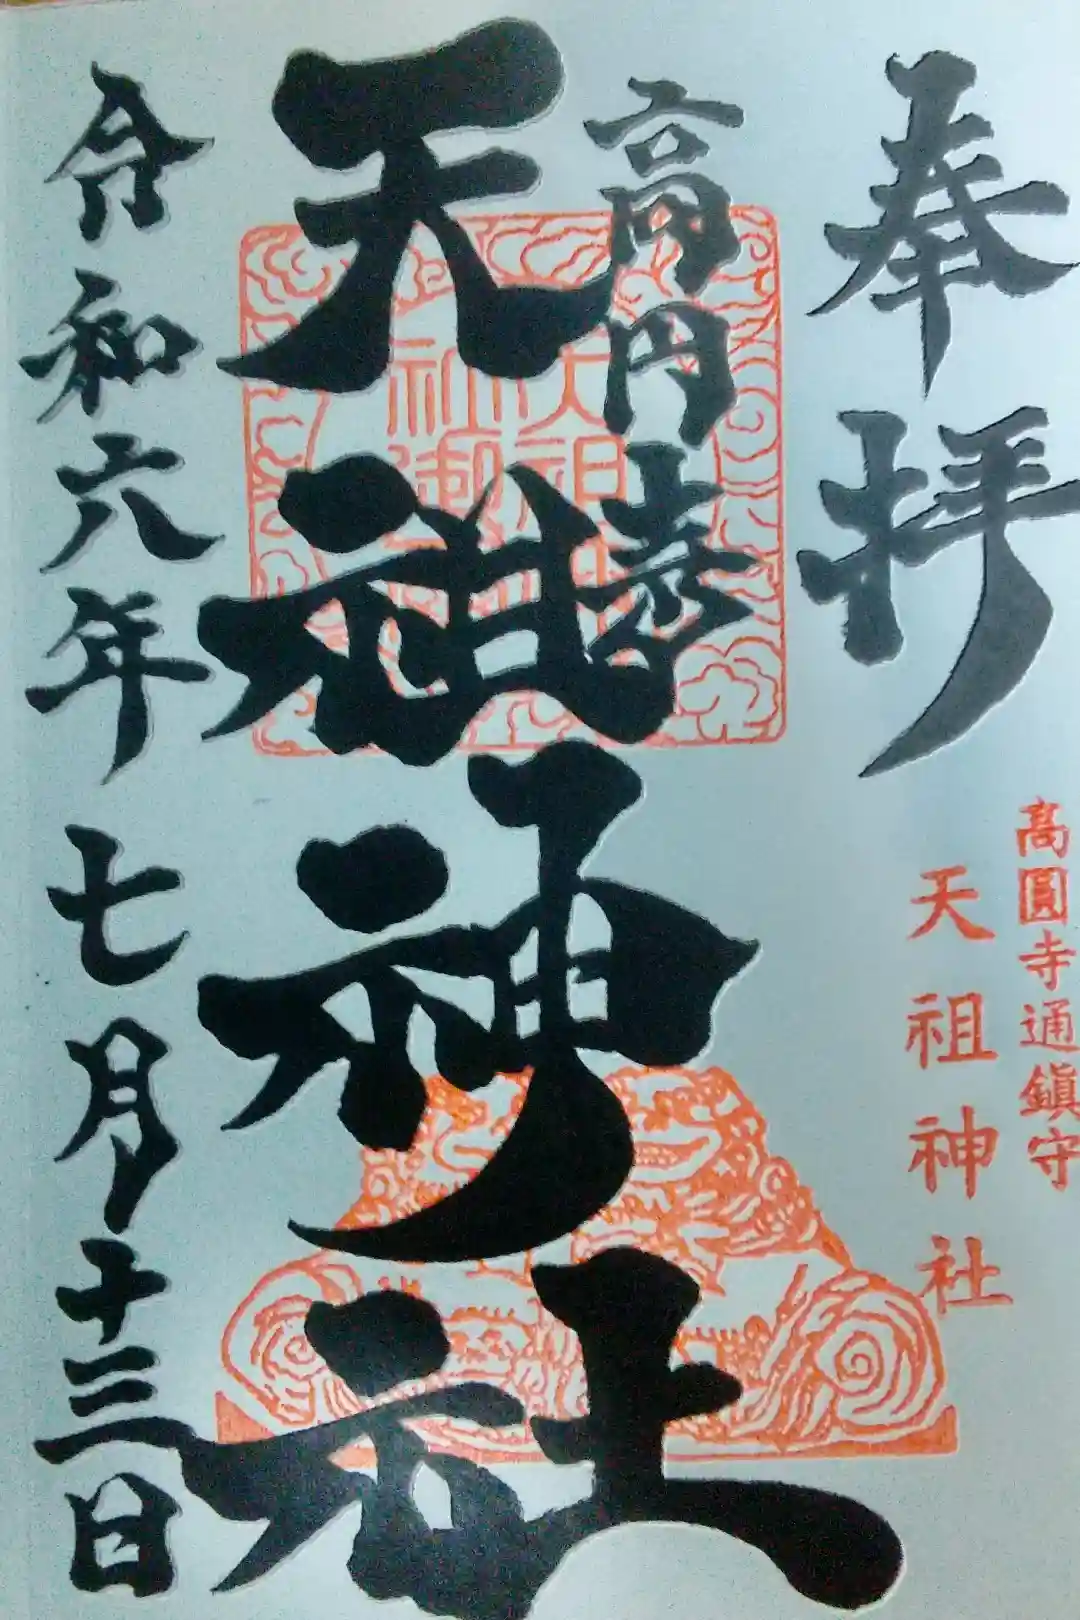 奉拝
高圓寺通鎮守
天祖神社
高円寺
天祖神社
令和六年七月十三日